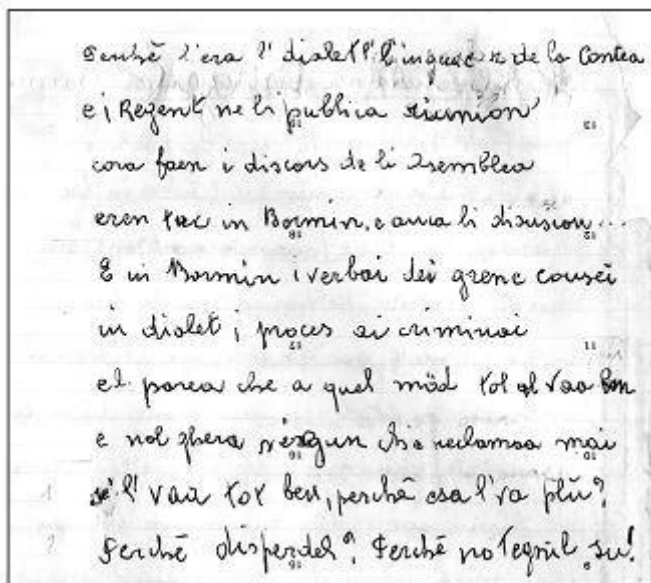 Perchè l'era l' dialet l' linguac'c de la Contea
e i Regent ne li publica riunion
cora faen i discors de li Asemblea
eren tuc in Bormin, e anca li discusion...
E in Bormin i verbai der grenc consei
in dialet i proces ai criminai
el parea che a quel mäd tot al vaa ben
e nol ghera nesgun che reclamaa mai
se l' vaa tot ben, perchè osa l' va plù?
Perchè disperdel? Perchè no tegnil su!